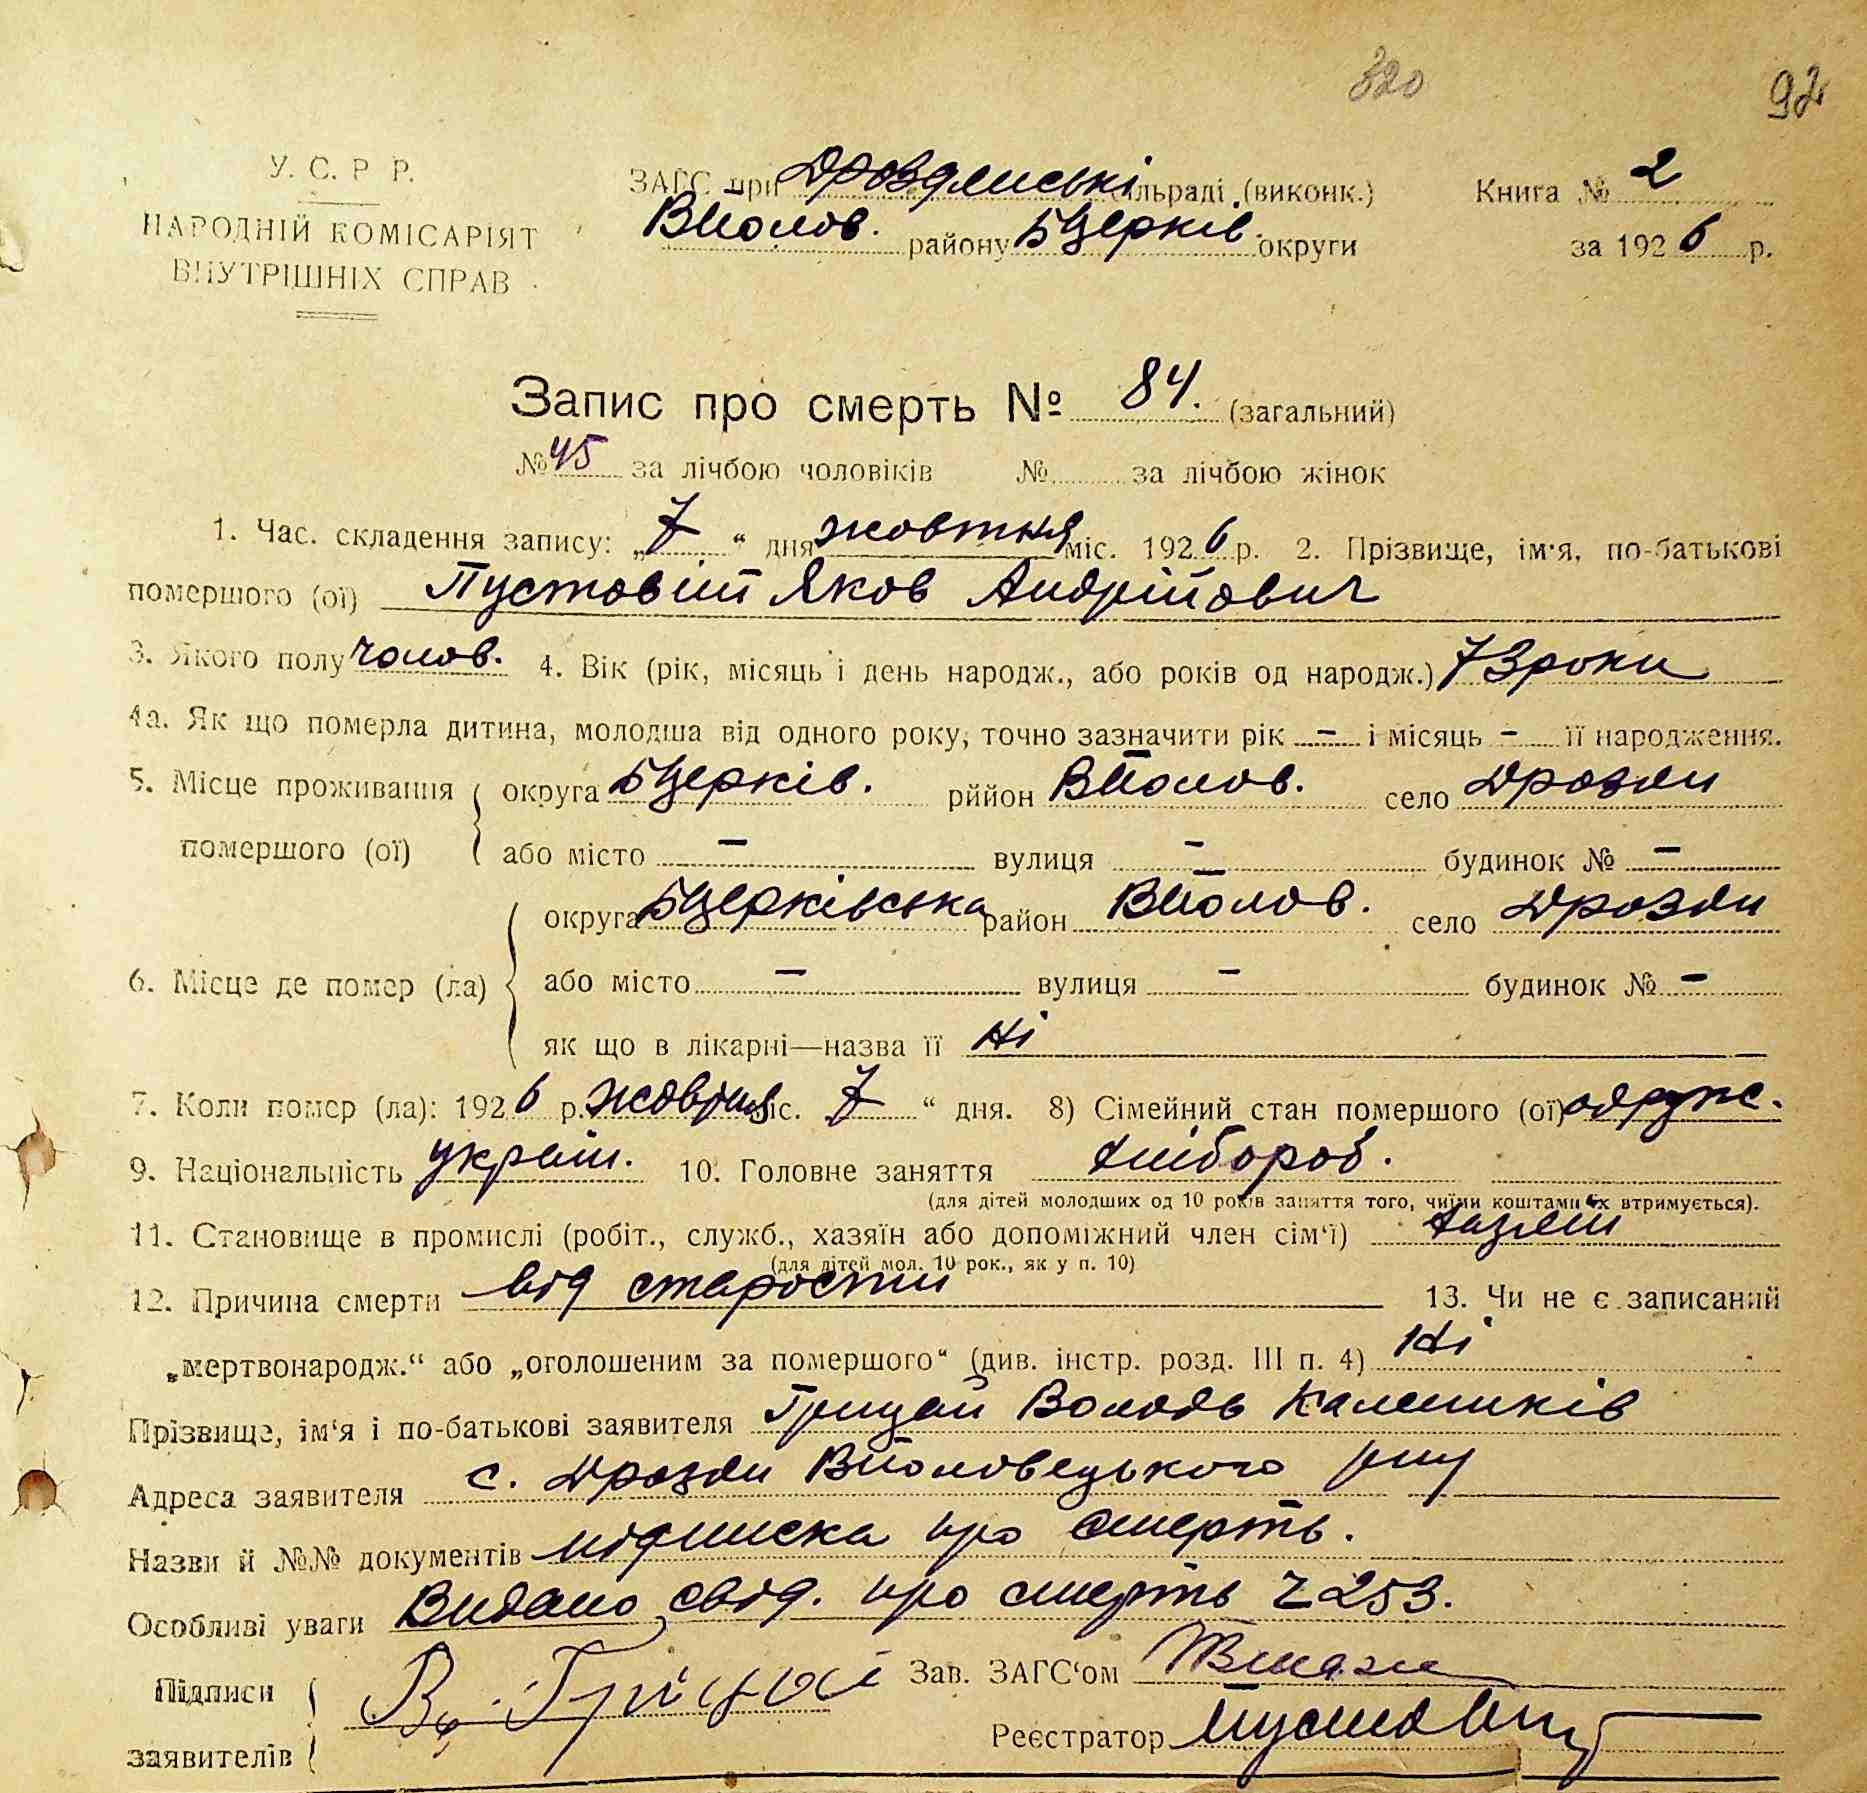 320
92
У. С. Р Р.
НАРОДНІЙ КОМІСАРІЯТ
ВНУТРІШНІХ СПРАВ
ЗАГС при Дроздянські сільраді (виконк.) Книга № 2
ВПолов. району БЦерків. округи за 1926 р.
Запис про смерть № 84. (загальний)
№ 45 за лічбою чоловіків № за лічбою жінок
1. Час. складення запису: „7“ дня жовтня міс. 1926 р. 2. Прізвище, ім'я, по-батькові
помершого (ої) Пустовіт Яков Андрійович
3. Якого полу чолов. 4. Вік (рік, місяць і день народж., або років од народж.) 73 роки
4а. Як що померла дитина, молодша від одного року, точно зазначити рік – і місяць – її народження.
5. Місце проживання округа БЦерків. рййон ВПолов. село Дрозди
помершого (ої) або місто – вулиця – будинок № –
округа БЦерківська район ВПолов. село Дрозди
6. Місце де помер (ла) або місто – вулиця – будинок № –
як що в лікарні—назва її Ні
7. Коли помер (ла): 1926 р. жовтня міс. 7“ дня. 8) Сімейний стан помершого (ої) одруж.
9. Національність україн. 10. Головне заняття хлібороб.
(для дітей молодших од 10 років заняття того, чиїми коштами їх втримується).
11. Становище в промислі (робіт., служб., хазяїн або допоміжний член сім'ї) хазяїн
(для дітей мол. 10 рок., як у п. 10)
12. Причина смерти від старости 13. Чи не є записаний
„мертвонародж.“ або „оголошеним за помершого“ (див. інстр. розд. III п. 4) Ні
Прізвище, ім'я і по-батькові заявителя Грицай Володь Калеників
Адреса заявителя с. Дрозди ВПоловецького р-ну
Назви й №№ документів підписка про смерть.
Особливі уваги Видано свід. про смерть Ч 253.
Підписи В. Грицай Зав. ЗАГС'ом
заявителів Реєстратор Пустовіт